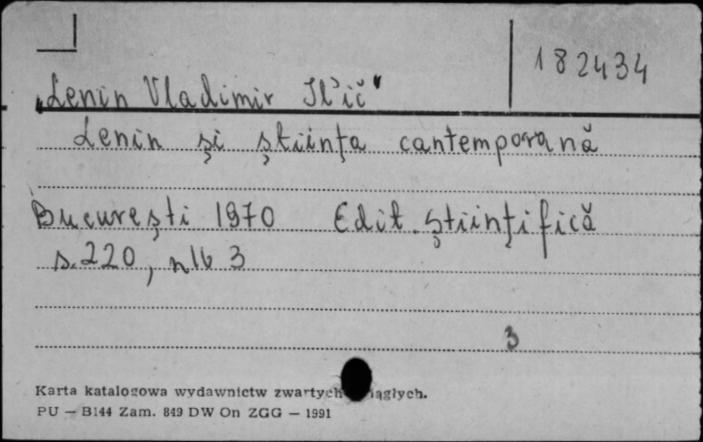 182434
„Lenin Vladimir Il'ič"
Lenin şi ştiinţa cantemporană
Bucureşti 1970 Edit. ştiinţifică
s. 220, nlb 3
3
Karta katalogowa wydawnictw zwartych ciągłych.
PU — B144 Zam. 849 DW On ZGG — 1991